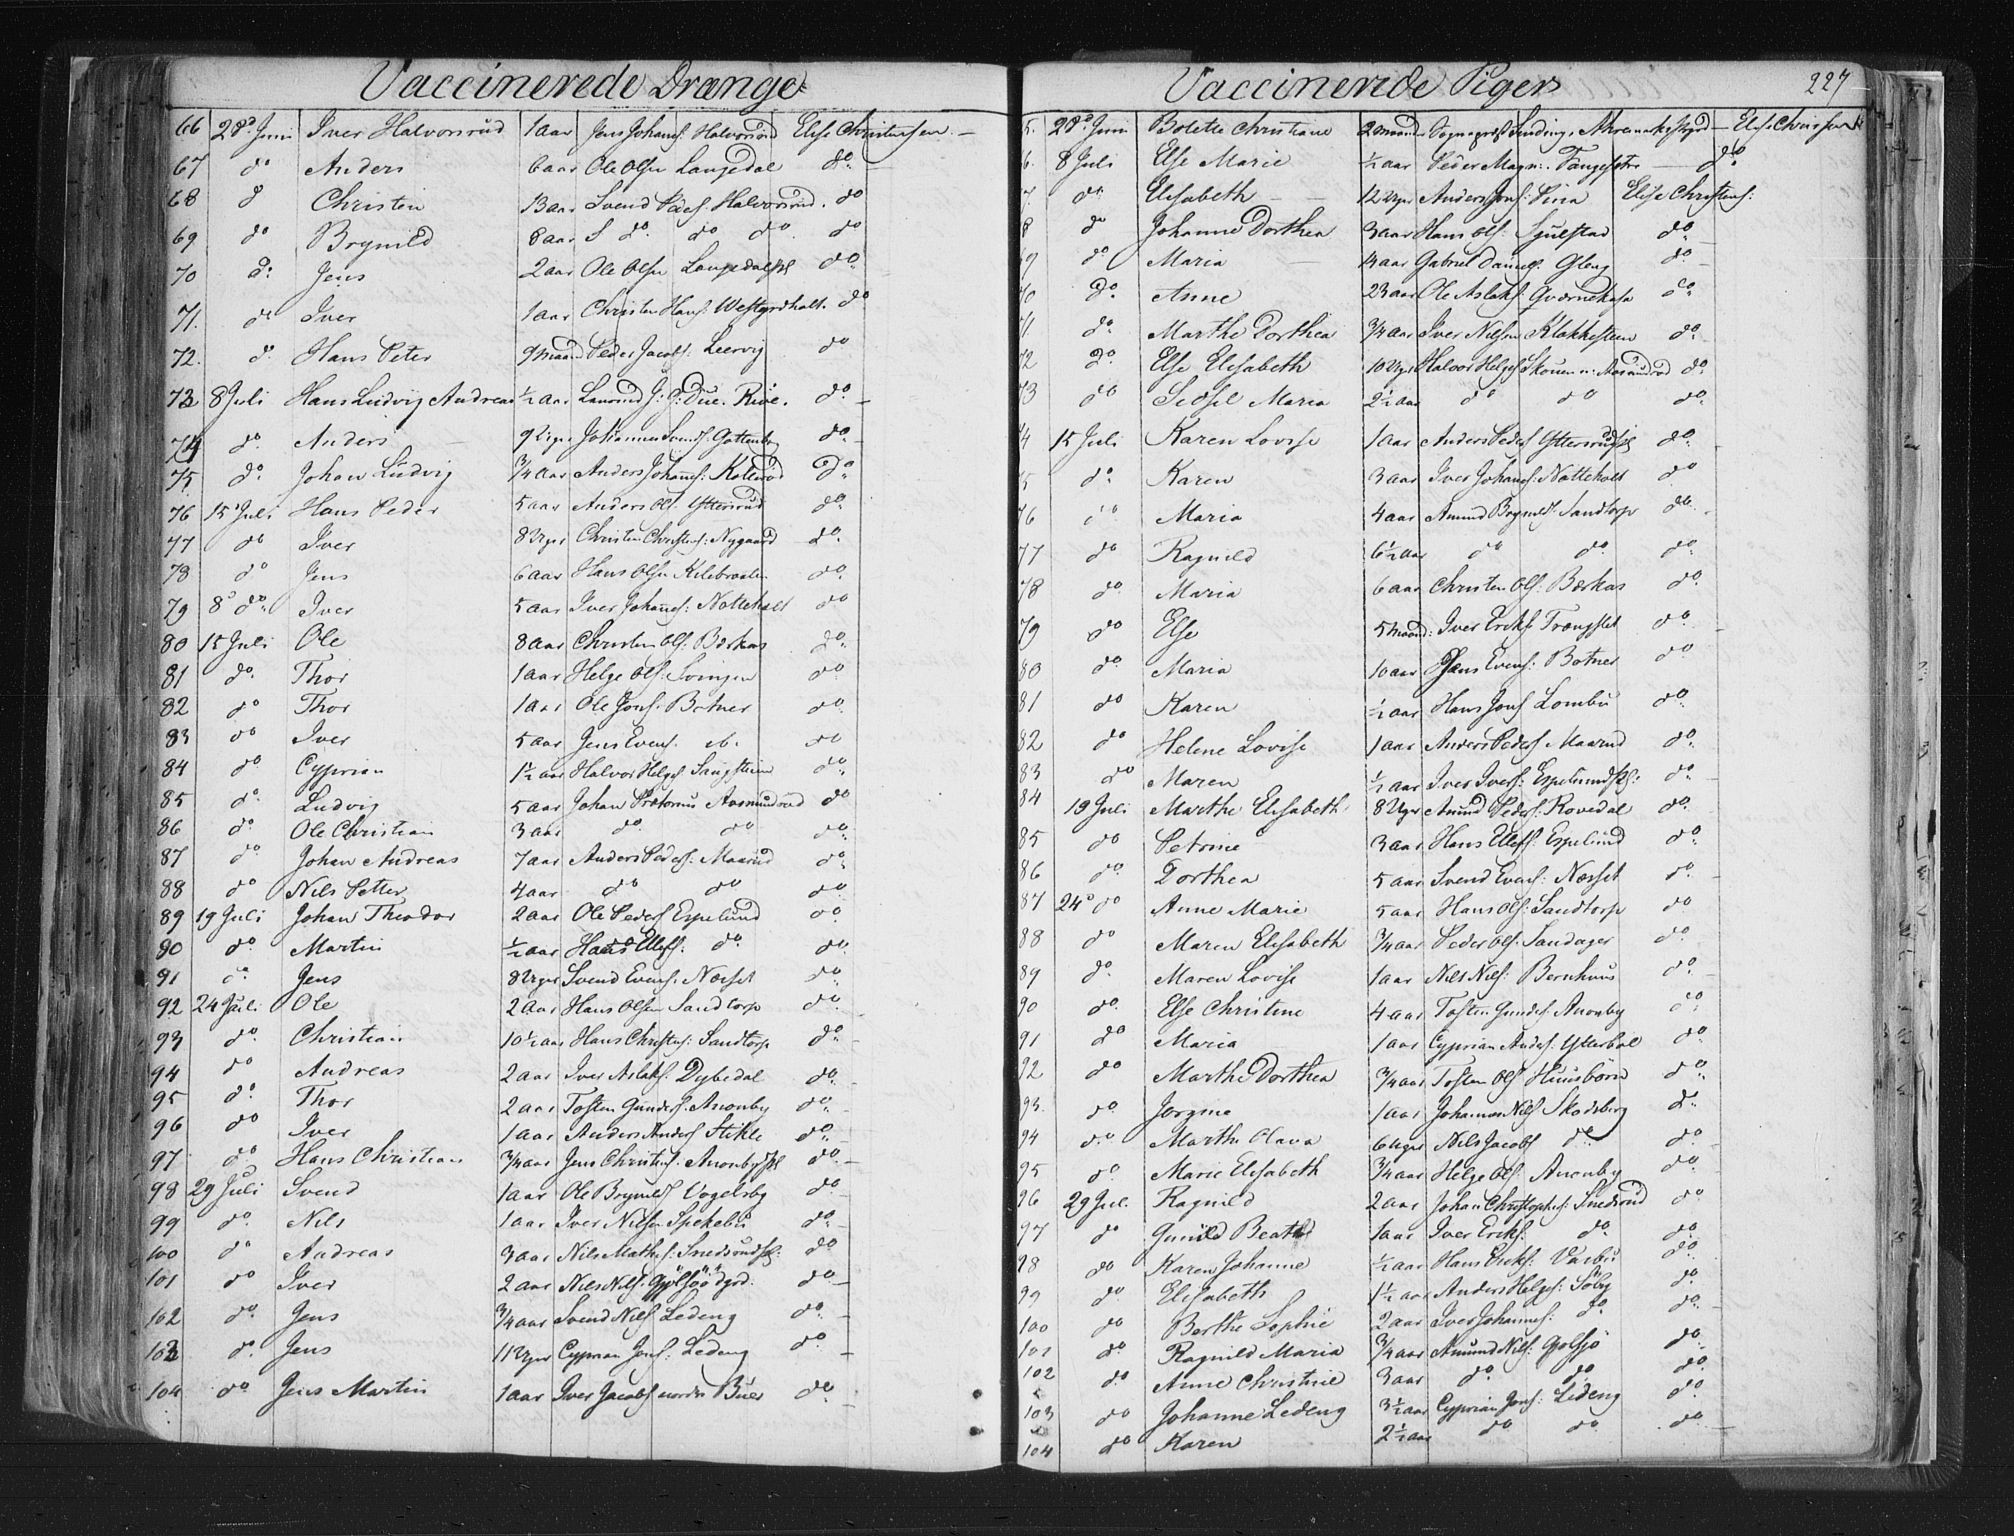 Vaccinerede Drænge
66 28d Juni Iver Halvorsrud 1 aar Jens Johans: Halvorsrud Elise Christensen
67 do Anders 6 aar Ole Olsen Langedal do
68 d Christen 13 aar Svend Peders: Halvorsrud do
69 do Brynild 8 aar S do do do do
70 do Jens 2 aar Ole Olsen Langedal do
71. do Iver 1 aar Christen Hans: Westgrdhalt. do
72. do Hans Peter 9 maan Peder Jacobs: Leervig do
73 8 Juli Hans Ludvig Andreas ½ aar J: G: Due. Riise. do
74 do Anders 9 Uger Johannes Svends: do
75. do Johan Ludvig ¾ aar Anders Johans: Kollerød do
76 15 Juli Hans Peder 5 aar Anders Ols: Yttersrud do
77 do Iver 8 Uger Christen Christens: Nygaard do
78 do Jens 6 aar Hans Olsen Kilebraaten do
79 8d do Iver 5 aar Iver Johans: Natteholt do
80 15 Juli Ole 8 aar Christen Ols: Børkas do
81 do Thor 1 aar Helge Ols: Svingen do
82 do Thor 1 aar Ole Jons: Botner do
83 do Iver 5 aar Jens Evens: ib. do
84 do Cyprian 1½ aar Halvor Helges: Saugsteen do
85 do Ludvig 5 aar Johan Prætorius Aasmundrød do
86 do Ole Christian 3 aar do do do
87 do Johan Andreas 7 aar Anders Peders: Maarud do
88 do Nils Petter 4 aar do do do
89 19 Juli Johan Theodor 2 aar Ole Peders: Espelund do
90 do Martin ½ aar Hans Ellefs: do do
91 do Jens 8 Uger Svend Evens: Næsset do
92 24 Juli Ole 2 aar Hans Olsen Sandtorp do
93 do Christian 10½ aar Hans Christens: Sandtorp do
94 do Andreas 2 aar Iver Aslaks: Dybedal do
95 do Thor 2 aar Tosten Gunders: Anonby do
96 do Iver 1 aar Anders Anders: Stikle do
97 do Hans Christian ¾ aar Jens Christens: Anonby do
98 29 Juli Svend 1 aar Ole Brynilds: Vogelsby do
99 do Nils 1 aar Iver Nilsen Spekebu do
100 do Andreas 3 aar Nils Mathis: do
101 do Iver 2 aar Nils Nils: Gjölsjöödgrd. do
102 do Jens ¾ aar Svend Nils: Ledeng do
103 do Jens 11 Uger Cyprian Jons: Ledeng do
104 do Jens Martin 1 aar Iver Jacobs: nordre Buer do
Vaccinerede Piger 227
5. 28d Juni Bolette Christiane 2 maaned Sogneprest Sinding, Elise Christensen
6. 8 Juli Else Marie ½ aar Peder Magn: do
7. do Elisabeth 12 Uger Anders Jons: Elise Christens:
8 do Johanne Dorthea 3 aar Hans Ols: Sjulstad do
69 do Maria 14 aar Gabriel Daniels: Gleng do
70 do Anne 23 aar Ole Aslaks: Qvernekasa do
71 do Marthe Dorthea ¾ aar Iver Nilsen Klakkesteen do
72 do Else Elisabeth 10 Uger Halvor Helges: Skouen u: Aasmundrød do
73 do Sidsel Maria 2½ aar do do do
4 15 Juli Karen Lovise 1 aar Anders Peders: do
5 do Karen 3 aar Iver Johans: Natteholt do
76 do Maria 4 aar Amund Brynilds: Sandtorp do
77 do Ragnild 6½ aar do do do
78 do Maria 6 aar Christen Ols: Børkas do
79 do Else 5 maand: Iver Eriks: Trængslet do
80 do Maria 10 aar Jens Evens: Botner do
81 do Karen ½ aar Hans Jons: Lombu do
82 do Helene Lovise 1 aar Anders Peders: Maarud do
83 do Maren ½ aar Iver Ivers: do
84 19 Juli Marthe Elisabeth 8 Uger Amund Peders: Rovedal do
85 do Petrine 3 aar Hans Ellefs: Espelund do
86 do Dorthea 5 aar Svend Evens: Næsset do
87 24d do Anne Marie 5 aar Hans Ols: Sandtorp do
88 do Maren Elisabeth ¾ aar Peder Ols: Sandager do
89 do Maren Lovise 1 aar Nils Nils: Bernhuus do
90 do Else Christine 4 aar Tosten Gunders: Anonby do
91 do Maria 1 aar Cyprian Anders: Ytterbøl do
92 do Marthe Dorthea ¾ aar Tosten Ols: Huusbörn do
93. do Jorgine 1 aar Johannes Nils: Skodsberg do
94 do Marthe Olava 6 Uger Nils Jacobs: do do
95 do Marie Elisabeth ¾ aar Helge Ols: Anonby do
96 29 Jul. Ragnild 2 aar Johan Christophers: Snedsrud do
97 do Gunild Beathe 1 aar Iver Eriks: do do
98 do Karen Johanne ½ aar Hans Eriks: Vasbu do
99 do Elisabeth 1½ aar Anders Helges: Söby do
100 do Berthe Sophie 2 aar Iver Johannes: do do
101 do Ragnild Maria ¾ aar Amund Nils: Gjolsjö do
102 do Anne Christine 3 aar do do do
103 do Johanne Ledeng 3½ aar Cyprian Jons: Ledeng do
104 do Karen 2½ aar do do do